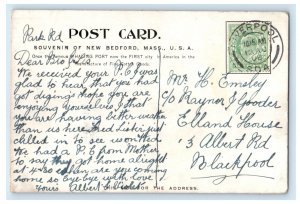 Park Rd
POST CARD.
SOUVENIR OF NEW BEDFORD, MASS., U. S. A.
Once the famous WHALING PORT now the FIRST city in America in the
manufacture of Fine Cotton Goods.
LIVERPOOL
Dear Bro & Sis
We received your P.C. was
glad to hear that you had
got digings & hope you are
enjoying yourselves & that
you are having better weather
than us here. Fred Lister just
called in to see
We had a P.C from Mother
to say they got home alright
at 4/30 can you are coming
home so bye bye with love
yours Albert & Violet
FOR THE ADDRESS.
Mr H. Emsley
C/o Raynor & Gooder
Elland House
13 Albert Rd
Blackpool